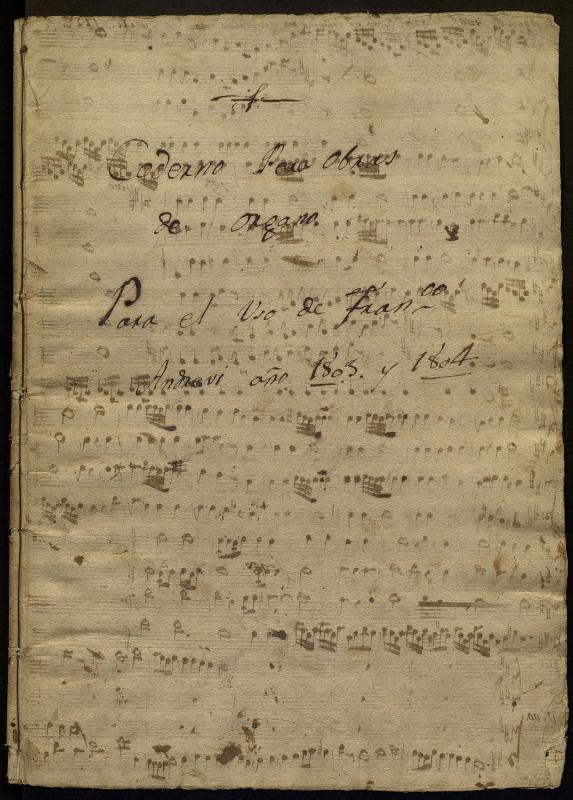 Coderno Para obras
de organo
Para el Uso de Fran^co
Andrevi año 1803. y 1804.